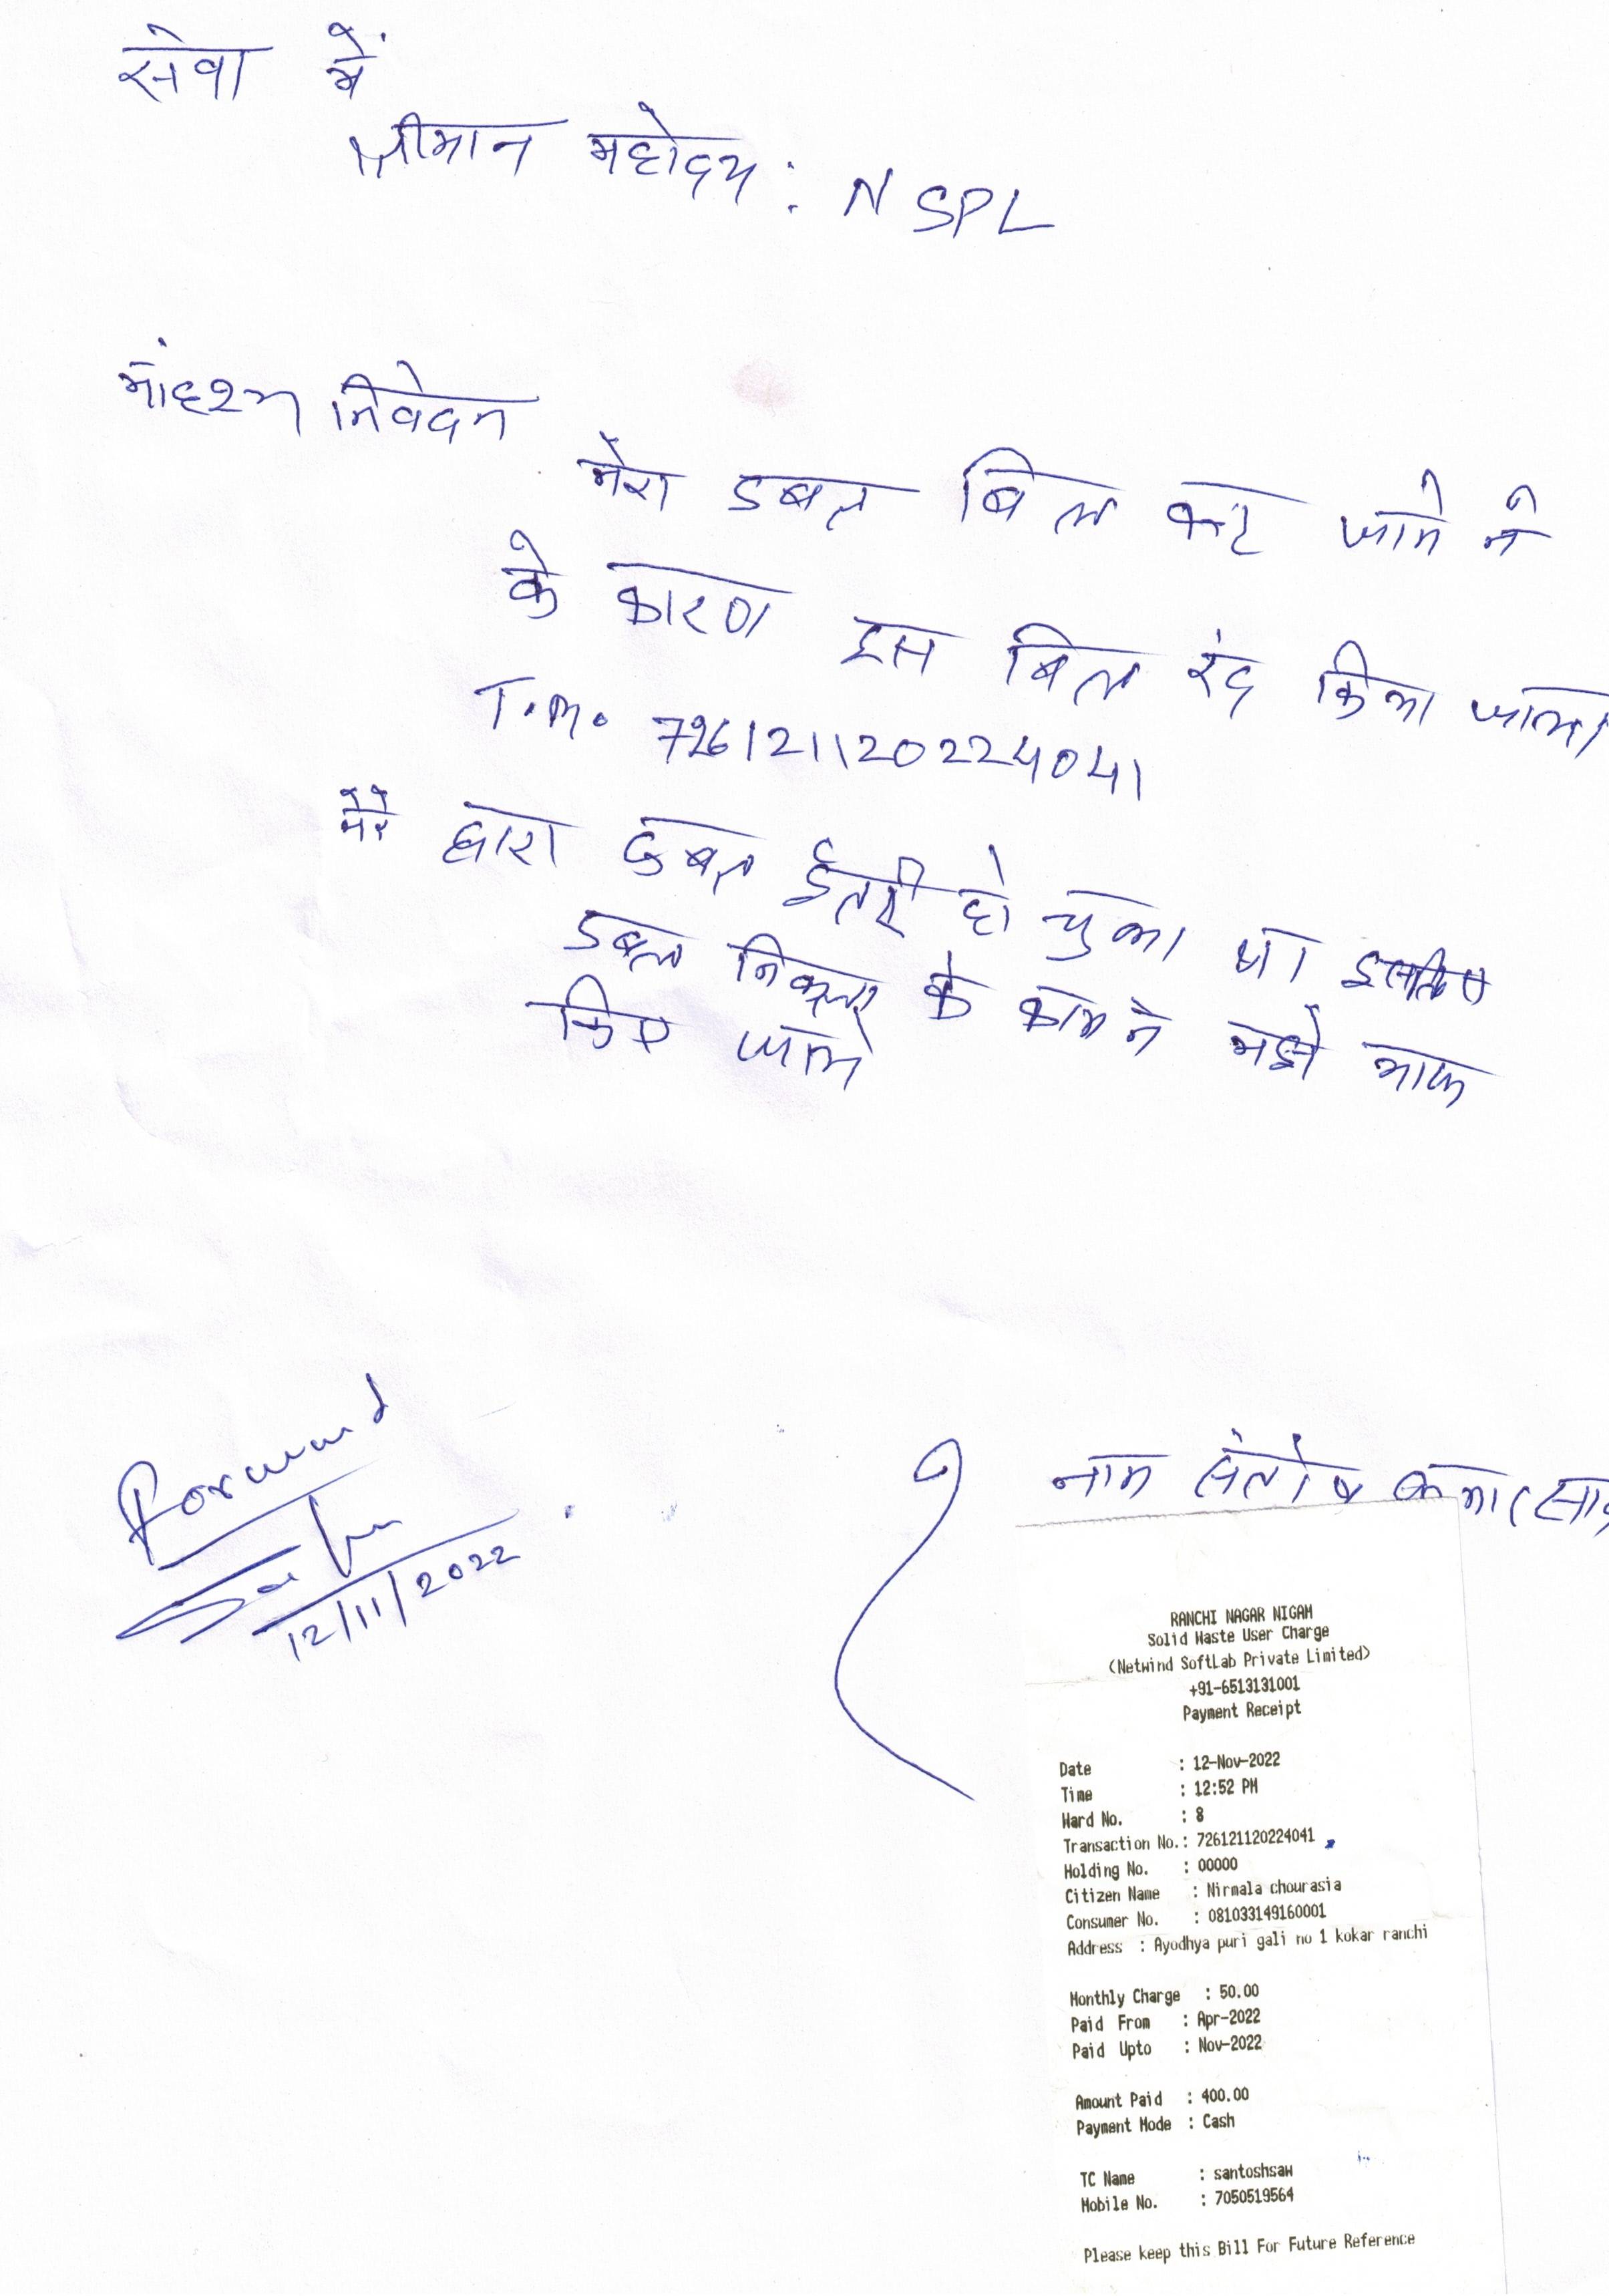 सेवा में
श्रीमान महोदय : NSPL
निवेदन
मेरा डबल बिल कट जाने ने
के कारण इस बिल रंद किया जाय
T.N. 726121120224041
मेरे द्वारा डुबल ईंतरी हो चुका था इसलिए
डबल निकला के काम ने मझे माफ
किए जाये
Forward
12/11/2022
नाम संतोष कुमार साव
RANCHI NAGAR NIGAM
Solid Waste User Charge
(Netwind SoftLab Private Limited)
+91-6513131001
Payment Receipt
Date : 12-Nov-2022
Time : 12:52 PM
Ward No. : 8
Transaction No.: 726121120224041
Holding No. : 00000
Citizen Name : Nirmala chourasia
Consumer No. : 081033149160001
Address : Ayodhya puri gali no 1 kokar ranchi
Monthly Charge : 50.00
Paid From : Apr-2022
Paid Upto : Nov-2022
Amount Paid : 400.00
Payment Mode : Cash
TC Name : santoshsaw
Mobile No. : 7050519564
Please keep this Bill For Future Reference